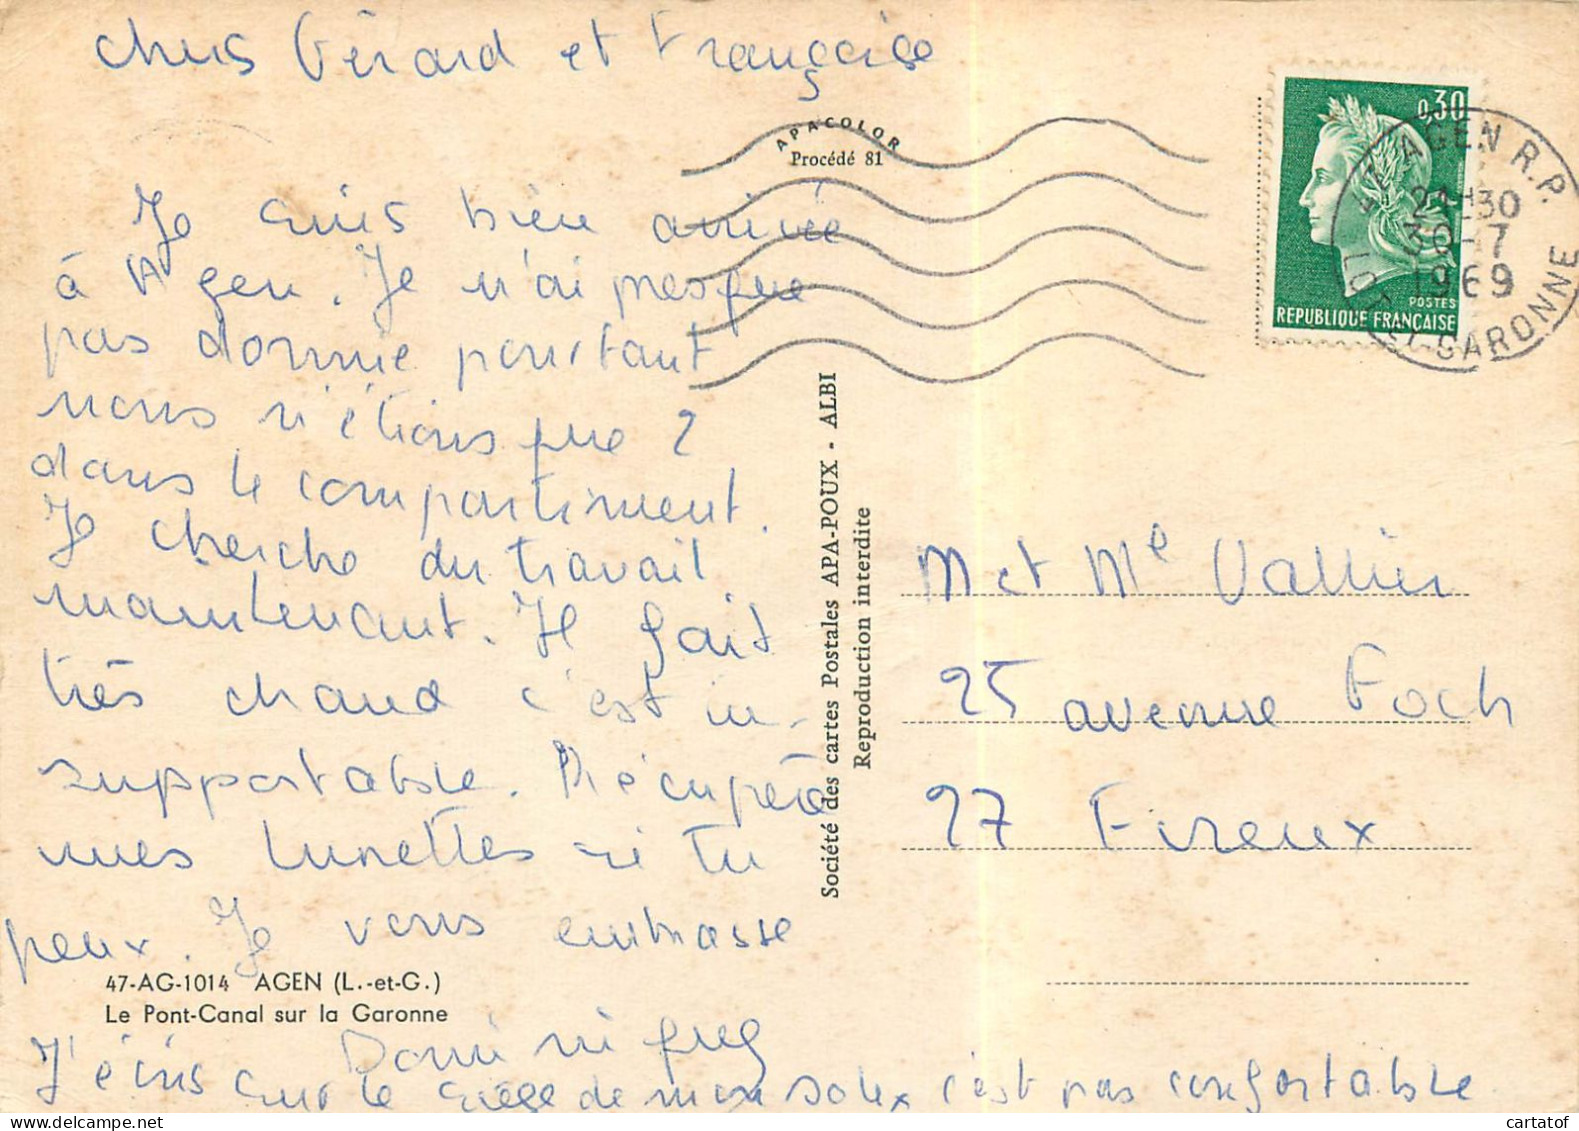 Chers Gérard et Françoise
APACOLOR
Procédé 81
0,30
POSTES
REPUBLIQUE FRANÇAISE
47 AGEN R.P.
21H30
30-7
1969
LOT-ET-GARONNE
Je suis bien arrivée
à Agen. Je n'ai presque
pas dormie pourtant
nous n'étions que 2
dans le compartiment.
Je cherche du travail
maintenant. Il fait
très chaud c'est in-
supportable. Récupère
mes lunettes si tu
peux. Je vous embrasse
47-AG-1014 AGEN (L.-et-G.)
Le Pont-Canal sur la Garonne
Dominique
J'écris sur le siège de mon solex c'est pas confortable
Société des cartes Postales APA-POUX - ALBI
Reproduction interdite
M et Me Vallier
25 avenue Foch
27 Evreux
cartatof